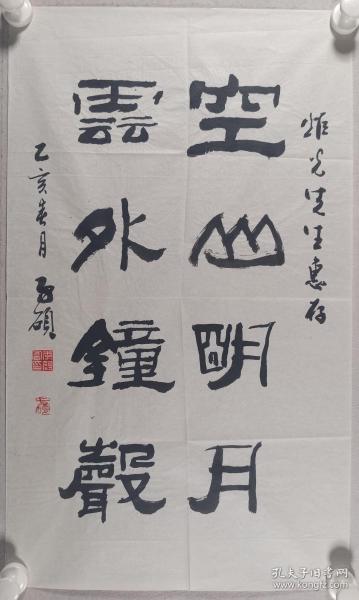 雅光先生惠存
空山明月
雲外鐘聲
乙亥春月 子硕
孔夫子旧书网
www.kongfz.com